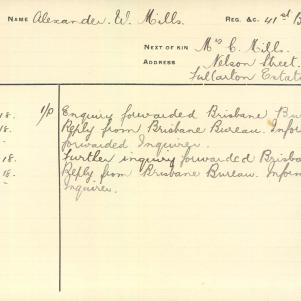 NAME Alexander. W. Mills. REG. &C. 41st B
NEXT OF KIN Mrs C. Mills.
ADDRESS Nelson Street.
Fullarton Estate
18. 1/P Enquiry forwarded Brisbane Bu
18. Reply from Brisbane Bureau. Infor
forwarded Inquirer.
18. Further inquiry forwarded Brisba
18. Reply from Brisbane Bureau. Infor
Inquirer.